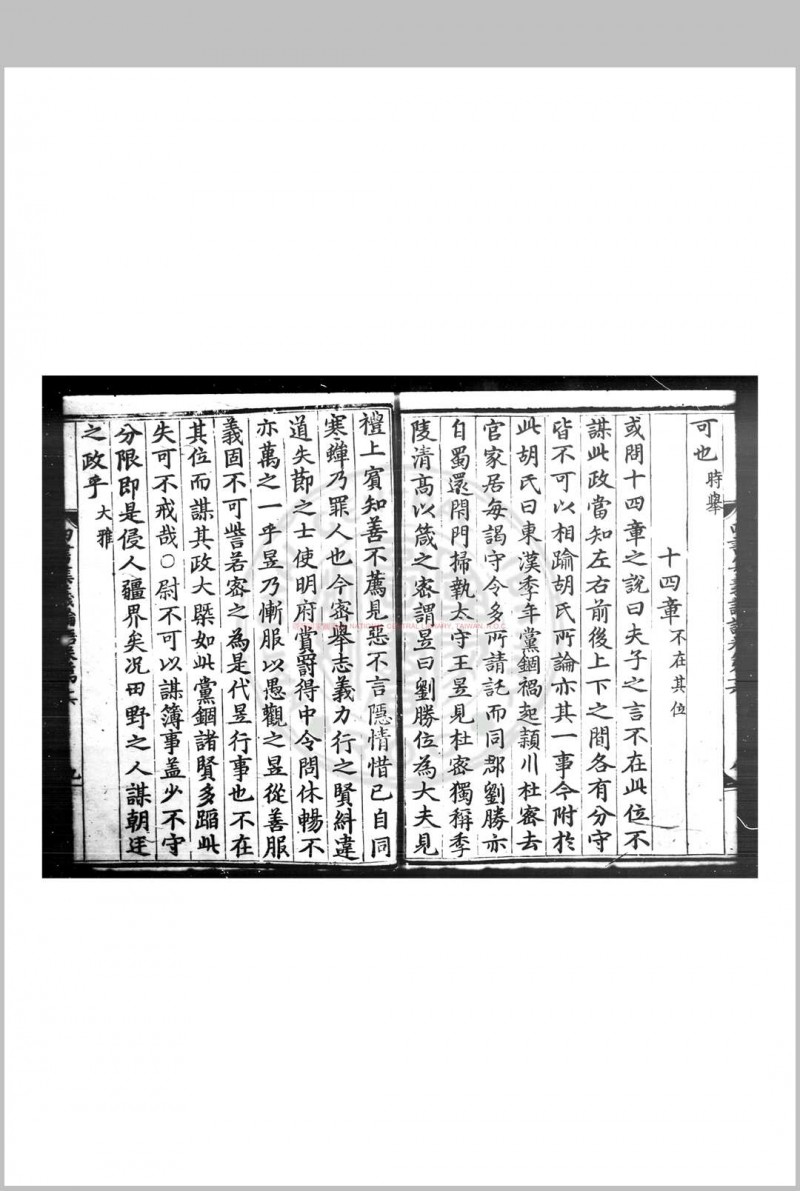 可也 時舉
十四章 不在其位
或問十四章之說曰夫子之言不在此位不
謀此政當知左右前後上下之間各有分守
皆不可以相踰胡氏所論亦其一事今附於
此胡氏曰東漢季年黨錮禍起潁川杜密去
官家居每謁守令多所請託而同郡劉勝亦
自蜀還閑門掃執太守王昱見杜密獨稱季
陵清高以箴之密謂昱曰劉勝位為大夫見
禮上賓知善不薦見惡不言隱情惜已自同
寒蟬乃罪人也今密舉志義力行之賢糾違
道失莭之士使明府賞罸得中令問休暢不
亦萬之一乎昱乃慚服以愚觀之昱從善服
義固不可訾若密之為是代昱行事也不在
其位而謀其政大槩如此黨錮諸賢多蹈此
失可不戒哉○尉不可以謀簿事盖少不守
分限即是侵人疆界矣况田野之人謀朝廷
之政乎 大雅